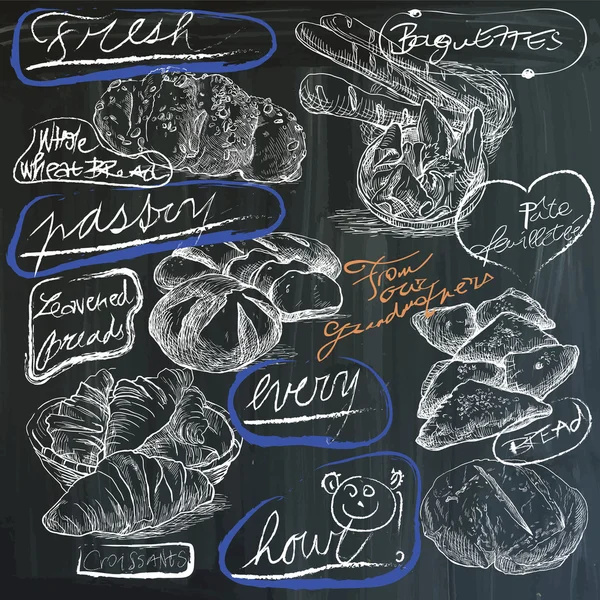 Fresh
BaguETTES
Whole
Wheat BRead
pastry
Pâte
feuilletée
From
our
Grandmothers
Leavened
Breads
every
BREAd
hour
CROISSANTS